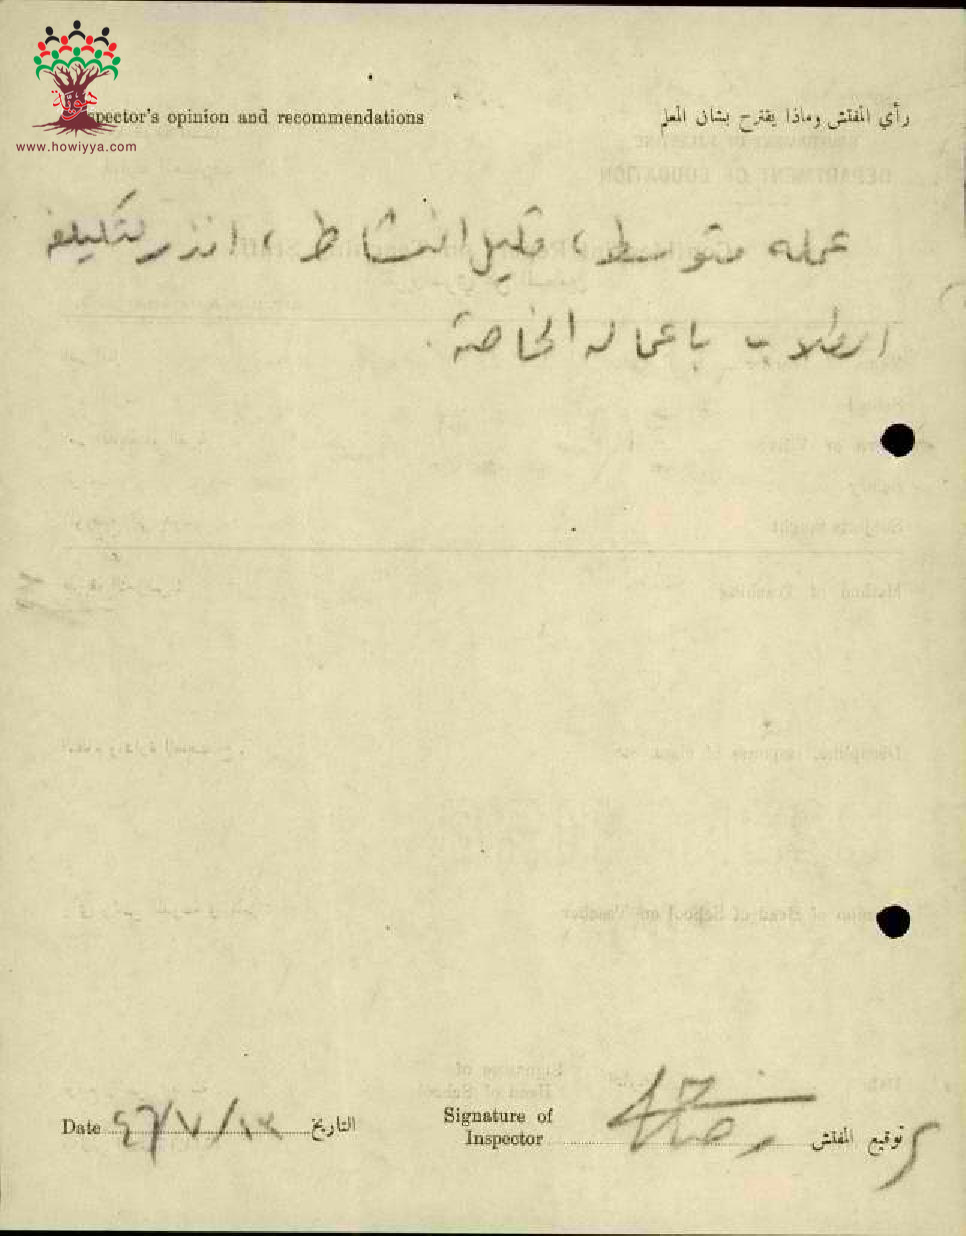 هوية
www.howiyya.com
Inspector's opinion and recommendations رأي المفتش وماذا يقترح بشأن المعلم
عمله متوسط، قليل النشاط، انذر لتكليفه
الطلاب باعماله الخاصة.
Signature of
Date ٤٦/٧/١٣ التاريخ
Inspector توقيع المفتش